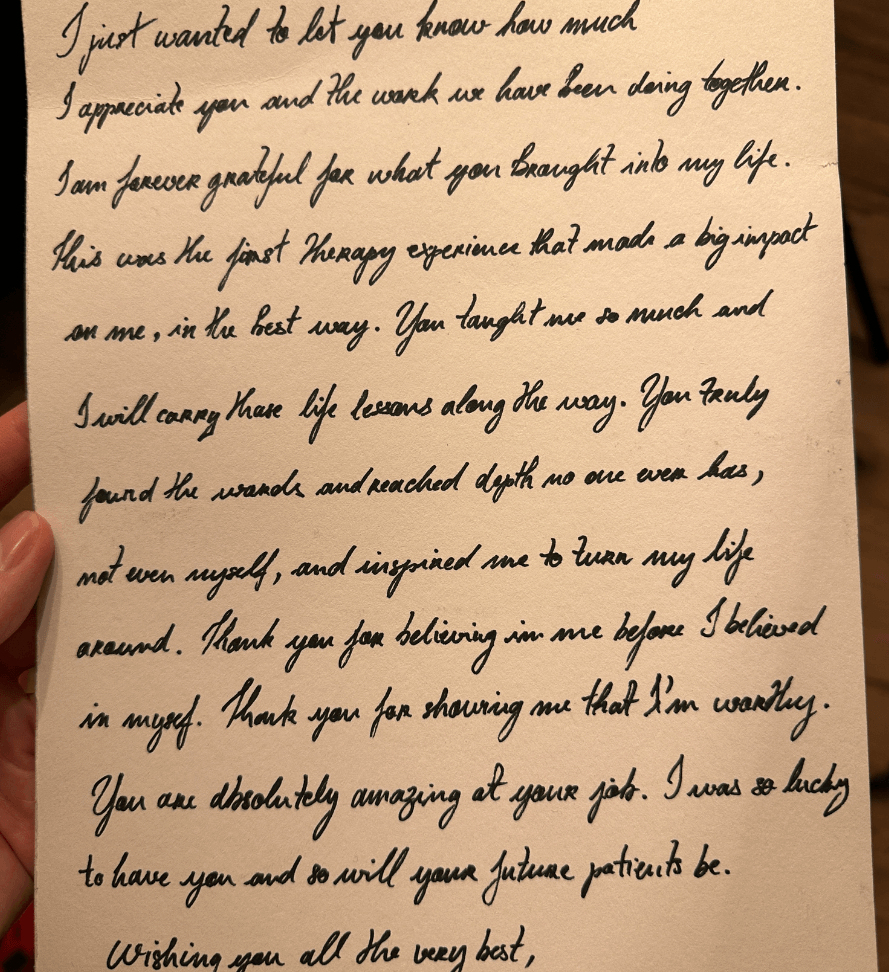 I just wanted to let you know how much
I appreciate you and the work we have been doing together.
I am forever grateful for what you brought into my life.
This was the first therapy experience that made a big impact
on me, in the best way. You taught me so much and
I will carry those life lessons along the way. You truly
found the words and reached depth no one ever has,
not even myself, and inspired me to turn my life
around. Thank you for believing in me before I believed
in myself. Thank you for showing me that I'm worthy.
You are absolutely amazing at your job. I was so lucky
to have you and so will your future patients be.
Wishing you all the very best,